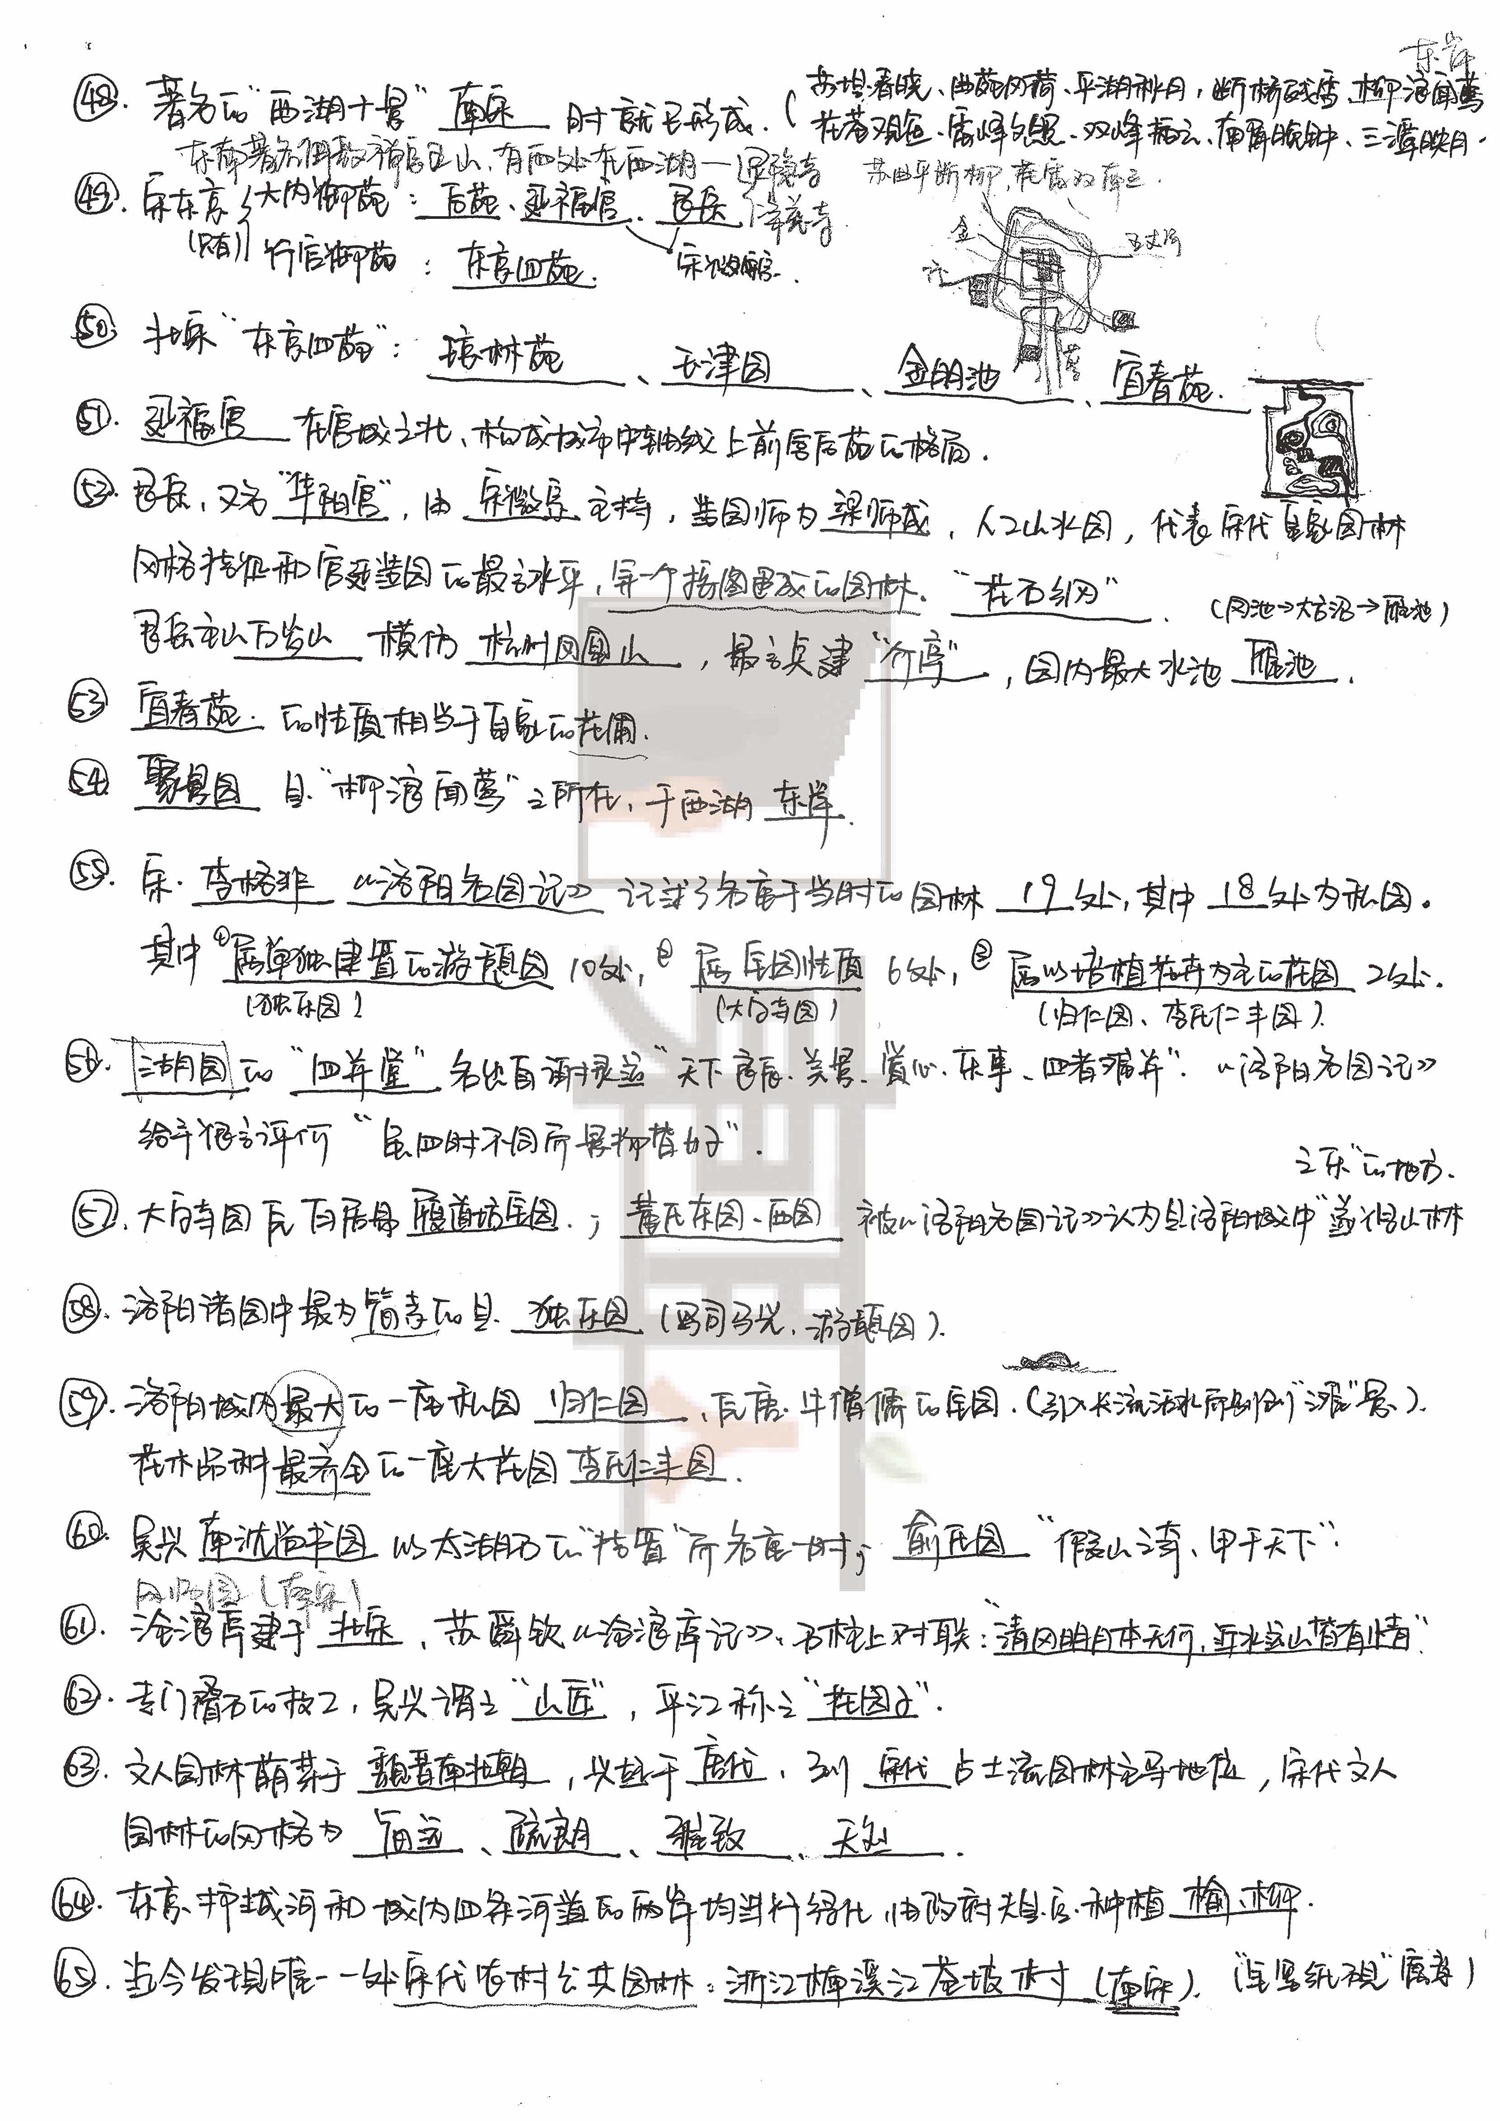 东岸
㊽. 著名的"西湖十景" 南宋 时就已形成.(苏堤春晓、曲苑风荷、平湖秋月,断桥残雪、柳浪闻莺
花港观鱼、雷峰夕照、双峰插云、南屏晚钟、三潭映月.
东南著名佛教禅宗五山,有两处在西湖—灵隐寺
净慈寺
苏曲平断柳,花雷双南三.
㊾. 宋东京 大内御苑:后苑、延福宫、艮岳
(只有) 行宫御苑:东京四苑. 宋徽宗.
金 五丈河
汴
蔡
㊿ 北宋"东京四苑":琼林苑、玉津园、金明池、宜春苑.
51. 延福宫 在宫城之北、构成城市中轴线上前宫后苑的格局.
52. 艮岳,又名"华阳宫",由 宋徽宗 主持,造园师为梁师成,人工山水园,代表宋代皇家园林
风格特征和宫廷造园的最高水平,第一个按图建成的园林。"花石纲". (凤池→大方沼→雁池)
艮岳主山万岁山 模仿 杭州凤凰山,最高点建"介亭",园内最大水池 雁池.
53 宜春苑. 的性质相当于皇家的花圃.
54. 聚景园 是"柳浪闻莺"之所在,于西湖 东岸.
55. 宋·李格非《洛阳名园记》记录了名重于当时的园林 19 处,其中 18 处为私园。
其中①属单独建置的游憩园 10处,② 属宅园性质 6处,③ 属以培植花卉为主的花园 2处.
(独乐园) (大字寺园) (归仁园、李氏仁丰园).
56. 湖园的"四并堂"名出自谢灵运"天下良辰、美景、赏心、乐事、四者难并". 《洛阳名园记》
给予很高评价"虽四时不同而景物皆好".
之乐"的地方.
57. 大字寺园 原 白居易 履道坊宅园.;董氏东园、西园 被《洛阳名园记》认为是洛阳城中"遂得山林
58. 洛阳诸园中最为简素的是 独乐园 (属司马光,游憩园).
59. 洛阳城内最大的一座私园 归仁园 ,原唐·牛僧儒的宅园.(引入长流活水而创"滩"景).
花木品种最齐全的一座大花园 李氏仁丰园.
60. 吴兴 南沈尚书园 以太湖石的"特置"而名重一时;俞氏园 "假山之奇、甲于天下".
网师园(南宋)
61. 沧浪亭建于 北宋 ,苏舜钦《沧浪亭记》. 石柱上对联:"清风明月本无价,近水远山皆有情"
62. 专门叠石的技工,吴兴谓之"山匠",平江称之"花园子".
63. 文人园林萌芽于 魏晋南北朝 ,兴起于 唐代 ,到 宋代 占士流园林主导地位,宋代文人
园林的风格为 简远、疏朗、雅致、天然.
64. 东京护城河和城内四条河道的两岸均进行绿化,由政府规定种植 榆、柳.
65. 当今发现唯一一处宋代农村公共园林:浙江楠溪江苍坡村 (南宋).